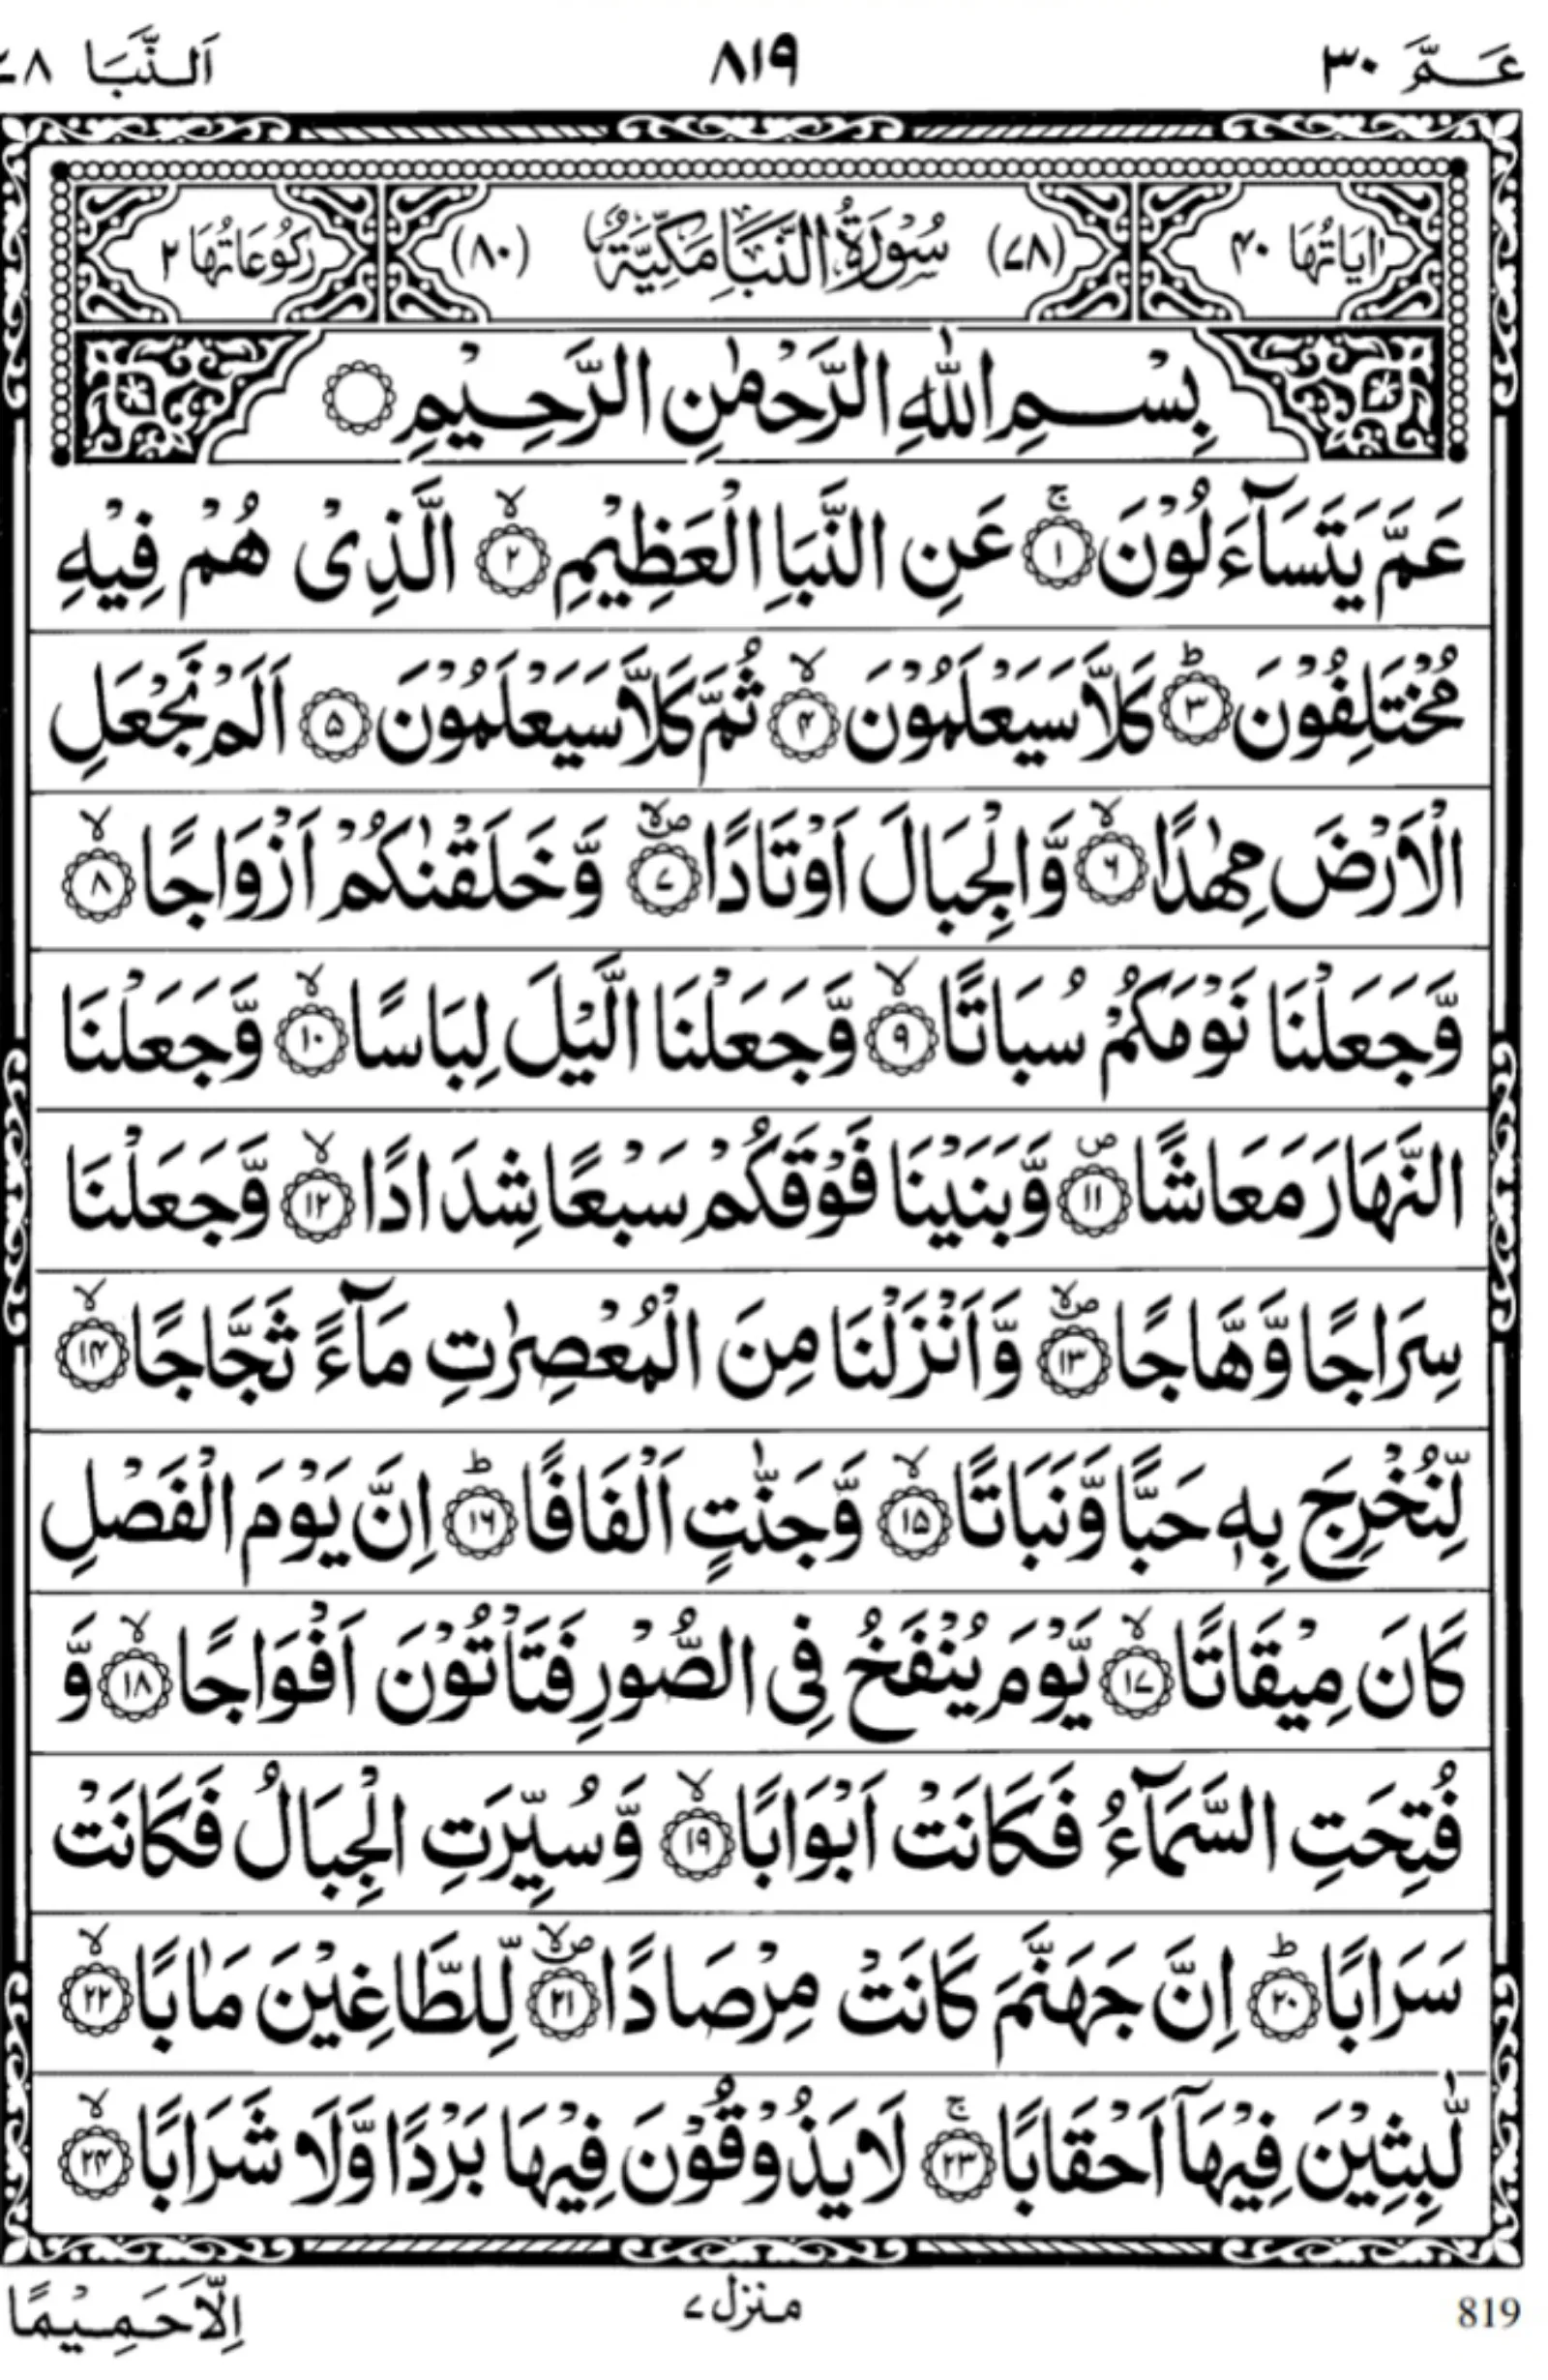 عَمَّ ٣٠
٨١٩
اَلنَّبَاِ ٧٨
اٰيَاتُهَا ٤٠
(٧٨) سُوْرَةُ النَّبَاِ مَكِّيَّةٌ (٨٠)
رُكُوْعَاتُهَا ٢
بِسْمِ اللّٰهِ الرَّحْمٰنِ الرَّحِيْمِ
عَمَّ يَتَسَآءَلُوْنَ ۚ﴿١﴾ عَنِ النَّبَاِ الْعَظِيْمِ ۙ﴿٢﴾ الَّذِىْ هُمْ فِيْهِ
مُخْتَلِفُوْنَ ؕ﴿٣﴾ كَلَّا سَيَعْلَمُوْنَ ۙ﴿٤﴾ ثُمَّ كَلَّا سَيَعْلَمُوْنَ ﴿٥﴾ اَلَمْ نَجْعَلِ
الْاَرْضَ مِهٰدًا ۙ﴿٦﴾ وَّالْجِبَالَ اَوْتَادًا ۪ۙ﴿٧﴾ وَّخَلَقْنٰكُمْ اَزْوَاجًا ۙ﴿٨﴾
وَّجَعَلْنَا نَوْمَكُمْ سُبَاتًا ۙ﴿٩﴾ وَّجَعَلْنَا الَّيْلَ لِبَاسًا ۙ﴿١٠﴾ وَّجَعَلْنَا
النَّهَارَ مَعَاشًا ۪﴿١١﴾ وَّبَنَيْنَا فَوْقَكُمْ سَبْعًا شِدَادًا ۙ﴿١٢﴾ وَّجَعَلْنَا
سِرَاجًا وَّهَّاجًا ۪ۙ﴿١٣﴾ وَّاَنْزَلْنَا مِنَ الْمُعْصِرٰتِ مَآءً ثَجَّاجًا ۙ﴿١٤﴾
لِّنُخْرِجَ بِهٖ حَبًّا وَّنَبَاتًا ۙ﴿١٥﴾ وَّجَنّٰتٍ اَلْفَافًا ؕ﴿١٦﴾ اِنَّ يَوْمَ الْفَصْلِ
كَانَ مِيْقَاتًا ۙ﴿١٧﴾ يَّوْمَ يُنْفَخُ فِى الصُّوْرِ فَتَاْتُوْنَ اَفْوَاجًا ۙ﴿١٨﴾ وَّ
فُتِحَتِ السَّمَآءُ فَكَانَتْ اَبْوَابًا ۙ﴿١٩﴾ وَّسُيِّرَتِ الْجِبَالُ فَكَانَتْ
سَرَابًا ؕ﴿٢٠﴾ اِنَّ جَهَنَّمَ كَانَتْ مِرْصَادًا ۪ۙ﴿٢١﴾ لِّلطَّاغِيْنَ مَاٰبًا ۙ﴿٢٢﴾
لّٰبِثِيْنَ فِيْهَآ اَحْقَابًا ۚ﴿٢٣﴾ لَا يَذُوْقُوْنَ فِيْهَا بَرْدًا وَّلَا شَرَابًا ۙ﴿٢٤﴾
819
منزل ٧
اِلَّا حَمِيْمًا